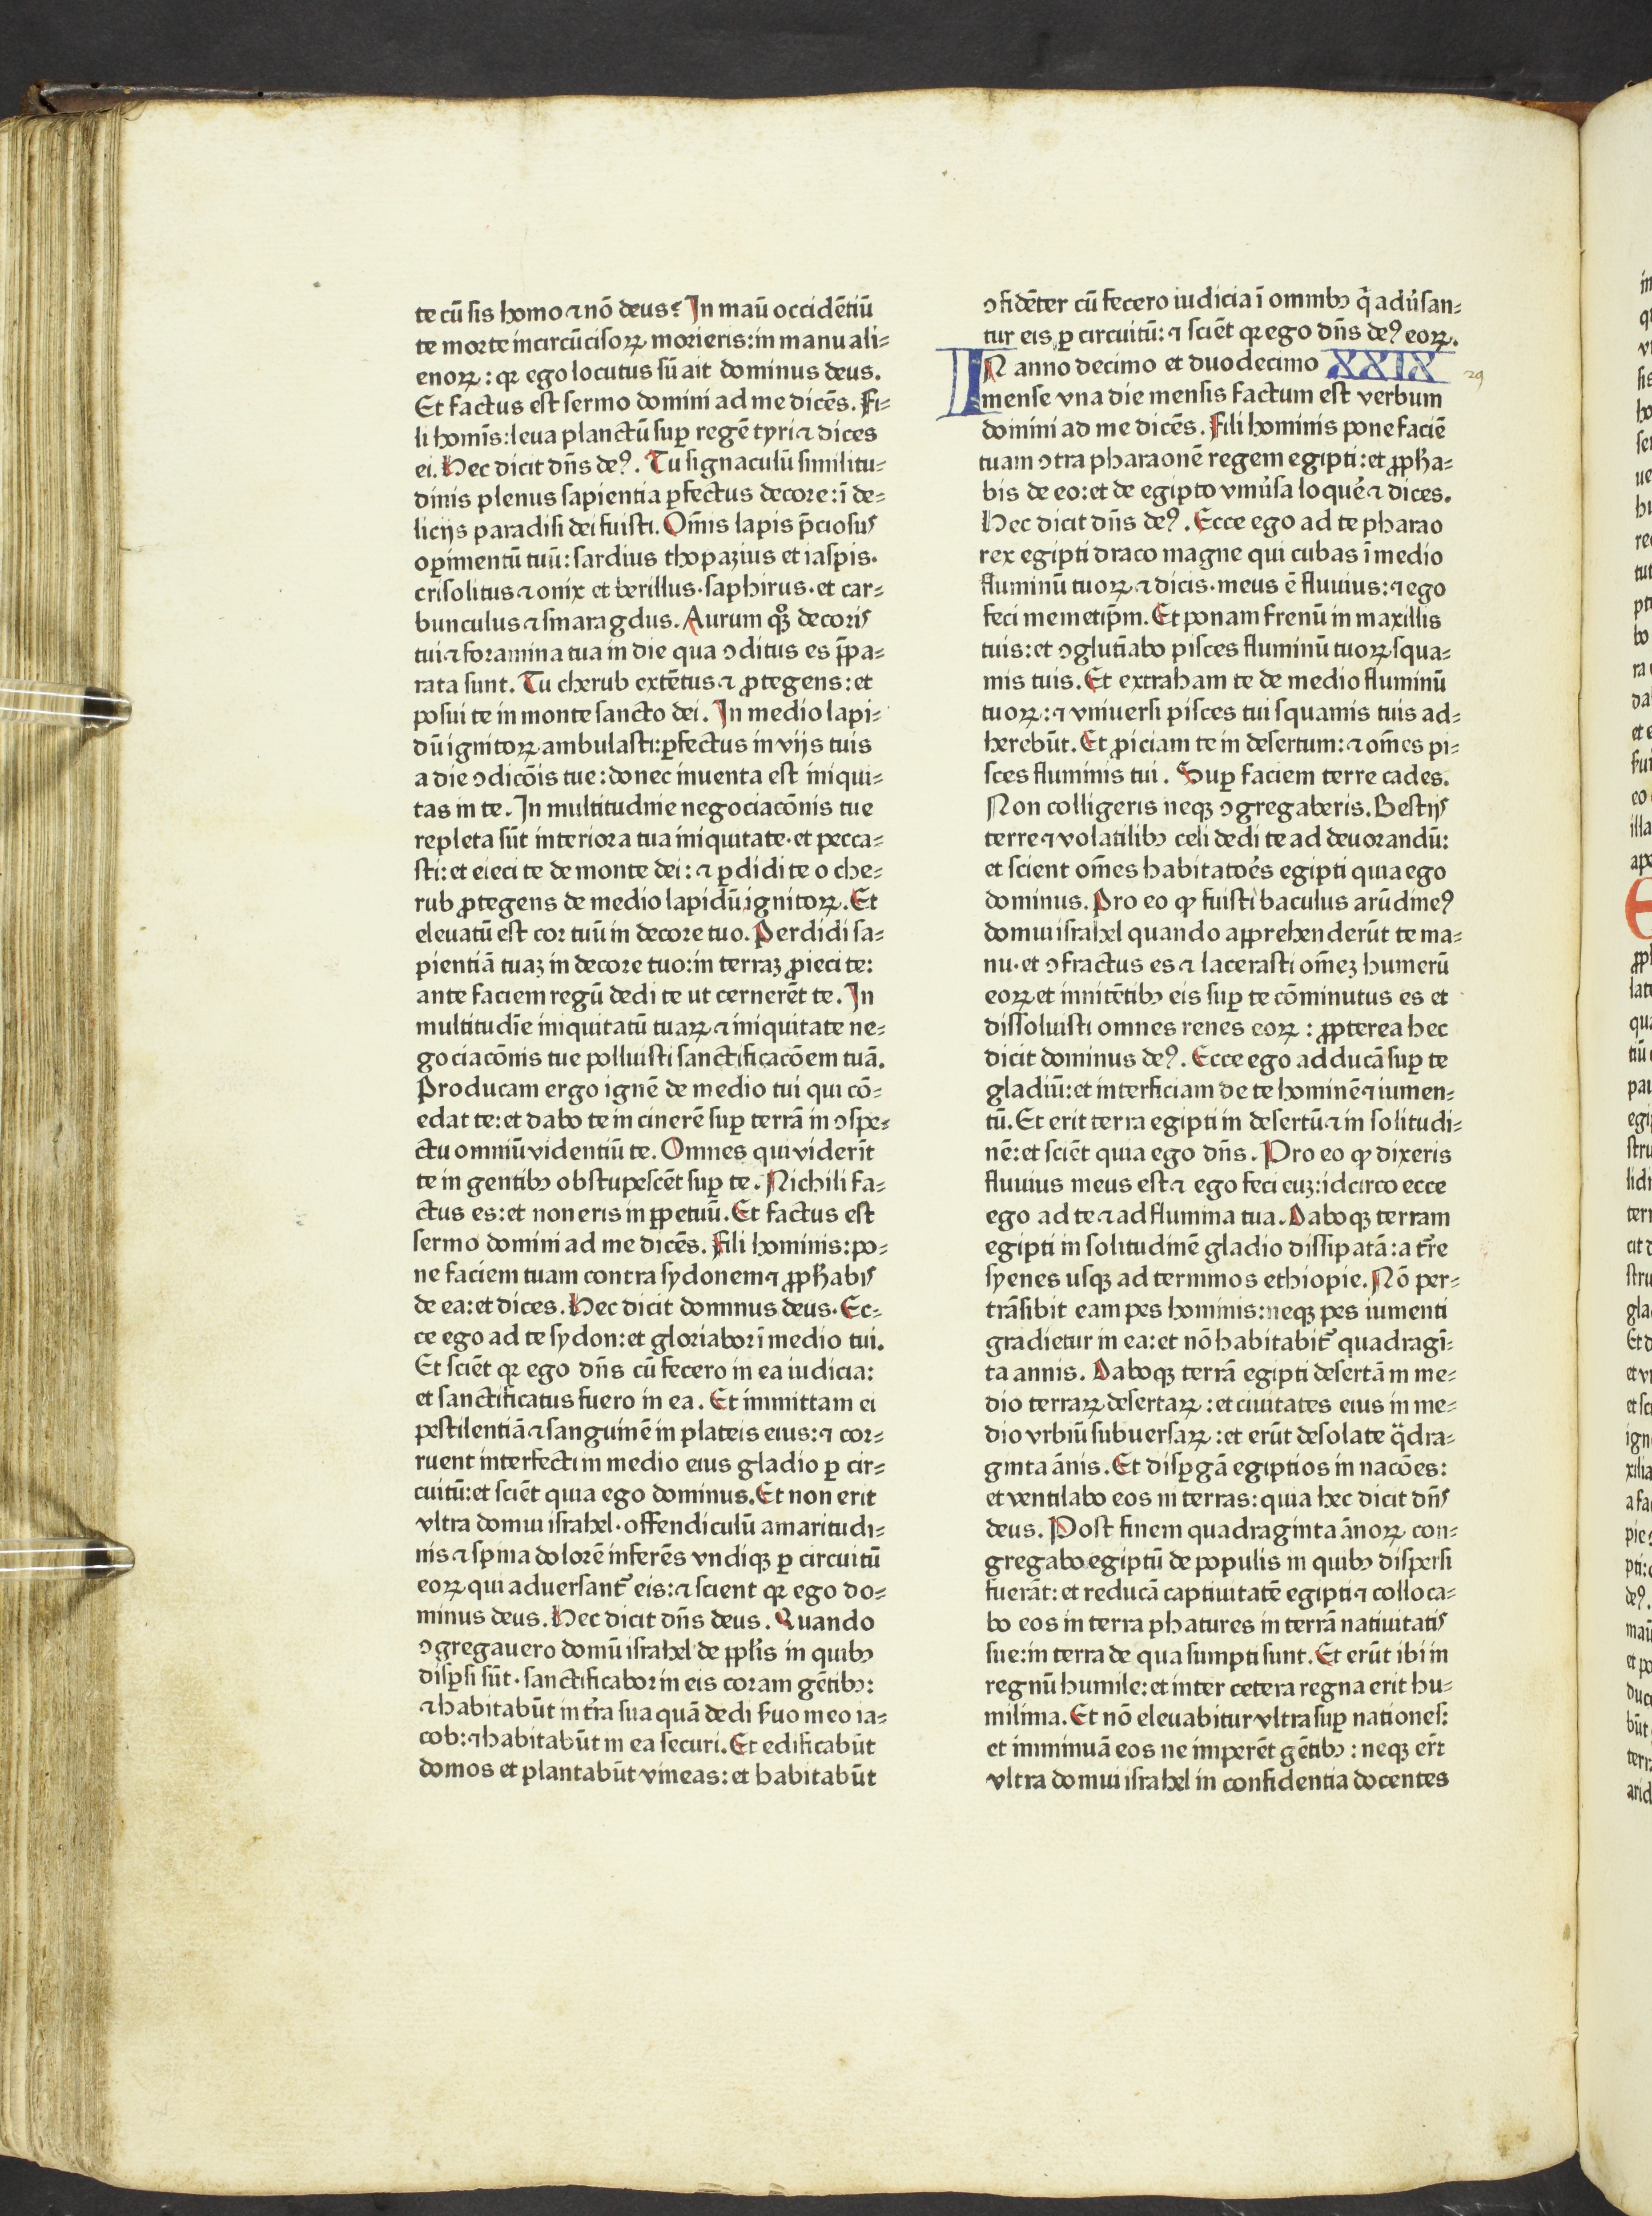 te cū sis homo ⁊ nō deus? In maū occidētiū
te morte incircūcisoꝝ morieris: in manu ali⸗
enoꝝ: qꝛ ego locutus sū ait dominus deus.
Et factus est sermo domini ad me dicēs. Fi⸗
li homīs: leua planctū suꝑ regē tyri ⁊ dices
ei. Hec dicit dn̄s deꝰ. Tu signaculū similitu⸗
dinis plenus sapientia ꝑfectus decore: ī de⸗
licijs paradisi dei fuisti. Om̄is lapis p̄ciosus
oꝑimentū tuū: sardius thopazius et iaspis.
crisolitus ⁊ onix et berillus. saphirus. et car⸗
bunculus ⁊ smaragdus. Aurum qꝫ decoris
tui ⁊ foramina tua in die qua ↄditus es p̄pa⸗
rata sunt. Tu cherub extētus ⁊ ꝓtegens: et
posui te in monte sancto dei. In medio lapi⸗
dū ignitoꝝ ambulasti: ꝑfectus in vijs tuis
a die ↄdicōis tue: donec inuenta est iniqui⸗
tas in te. In multitudine negociacōnis tue
repleta sūt interiora tua iniquitate. et pecca⸗
sti: et eieci te de monte dei: ⁊ ꝑdidi te o che⸗
rub ꝓtegens de medio lapidū ignitoꝝ. Et
eleuatū est cor tuū in decore tuo. Perdidi sa⸗
pientiā tuaꝫ in decore tuo: in terraꝫ ꝓieci te:
ante faciem regū dedi te ut cernerēt te. In
multitudīe iniquitatū tuaꝝ ⁊ iniquitate ne⸗
gociacōnis tue polluisti sanctificacōem tuā.
Producam ergo ignē de medio tui qui cō⸗
edat te: et dabo te in cinerē suꝑ terrā in ↄspe⸗
ctu omniū videntiū te. Omnes qui viderīt
te in gentibꝰ obstupescēt suꝑ te. Nichili fa⸗
ctus es: et non eris in ꝑpetuū. Et factus est
sermo domini ad me dicēs. Fili hominis: po⸗
ne faciem tuam contra sydonem ⁊ ꝓphabis
de ea: et dices. Hec dicit dominus deus. Ec⸗
ce ego ad te sydon: et gloriabor ī medio tui.
Et sciēt qꝛ ego dn̄s cū fecero in ea iudicia:
et sanctificatus fuero in ea. Et immittam ei
pestilentiā ⁊ sanguinē in plateis eius: ⁊ cor⸗
ruent interfecti in medio eius gladio ꝑ cir⸗
cuitū: et sciēt quia ego dominus. Et non erit
vltra domui israhel. offendiculū amaritudi⸗
nis ⁊ spina dolorē inferēs vndiqꝫ ꝑ circuitū
eoꝝ qui aduersant᷑ eis: ⁊ scient qꝛ ego do⸗
minus deus. Hec dicit dn̄s deus. Quando
ↄgregauero domū israhel de ppl̄is in quibꝰ
disꝑsi sūt. sanctificabor in eis coram gētibꝰ:
⁊ habitabūt in tr̄a sua quā dedi ẜuo meo ia⸗
cob: ⁊ habitabūt in ea securi. Et edificabūt
domos et plantabūt vineas: et habitabūt
ↄfidēter cū fecero iudicia ī omnibꝰ q̄ adūsan⸗
tur eis ꝑ circuitū: ⁊ sciēt qꝛ ego dn̄s deꝰ eoꝝ.
IN anno decimo et duodecimo XXIX 29
mense vna die mensis factum est verbum
domini ad me dicēs. Fili hominis pone faciē
tuam ↄtra pharaonē regem egipti: et ꝓpha⸗
bis de eo: et de egipto vniūsa loquē ⁊ dices.
Hec dicit dn̄s deꝰ. Ecce ego ad te pharao
rex egipti draco magne qui cubas ī medio
fluminū tuoꝝ ⁊ dicis. meus ē fluuius: ⁊ ego
feci memetip̄m. Et ponam frenū in maxillis
tuis: et ↄglutīabo pisces fluminū tuoꝝ squa⸗
mis tuis. Et extraham te de medio fluminū
tuoꝝ: ⁊ vniuersi pisces tui squamis tuis ad⸗
herebūt. Et ꝓiciam te in desertum: ⁊ om̄es pi⸗
sces fluminis tui. Suꝑ faciem terre cades.
Non colligeris neqꝫ ↄgregaberis. Bestijs
terre ⁊ volatilibꝰ celi dedi te ad deuorandū:
et scient om̄es habitatoēs egipti quia ego
dominus. Pro eo ꝙ fuisti baculus arūdineꝰ
domui israhel quando apprehenderūt te ma⸗
nu. et ↄfractus es ⁊ lacerasti om̄eꝫ humerū
eoꝝ et innitētibꝰ eis suꝑ te cōminutus es et
dissoluisti omnes renes eoꝝ: ꝓpterea hec
dicit dominus deꝰ. Ecce ego adducā suꝑ te
gladiū: et interficiam de te hominē ⁊ iumen⸗
tū. Et erit terra egipti in desertū ⁊ in solitudi⸗
nē: et sciēt quia ego dn̄s. Pro eo ꝙ dixeris
fluuius meus est ⁊ ego feci euꝫ: idcirco ecce
ego ad te ⁊ ad flumina tua. Daboqꝫ terram
egipti in solitudinē gladio dissipatā: a tr̄e
syenes usqꝫ ad terminos ethiopie. Nō per⸗
trāsibit eam pes hominis: neqꝫ pes iumenti
gradietur in ea: et nō habitabit᷑ quadragī⸗
ta annis. Daboqꝫ terrā egipti desertā in me⸗
dio terraꝝ desertaꝝ: et ciuitates eius in me⸗
dio vrbiū subuersaꝝ: et erūt desolate q̄dra⸗
ginta ānis. Et disꝑgā egiptios in nacōes:
et ventilabo eos in terras: quia hec dicit dn̄s
deus. Post finem quadraginta ānoꝝ con⸗
gregabo egiptū de populis in quibꝰ dispersi
fuerāt: et reducā captiuitatē egipti ⁊ colloca⸗
bo eos in terra phatures in terrā natiuitatis
sue: in terra de qua sumpti sunt. Et erūt ibi in
regnū humile: et inter cetera regna erit hu⸗
milima. Et nō eleuabitur vltra suꝑ nationes:
et imminuā eos ne imperēt gētibꝰ: neqꝫ er̄t
vltra domui israhel in confidentia docentes